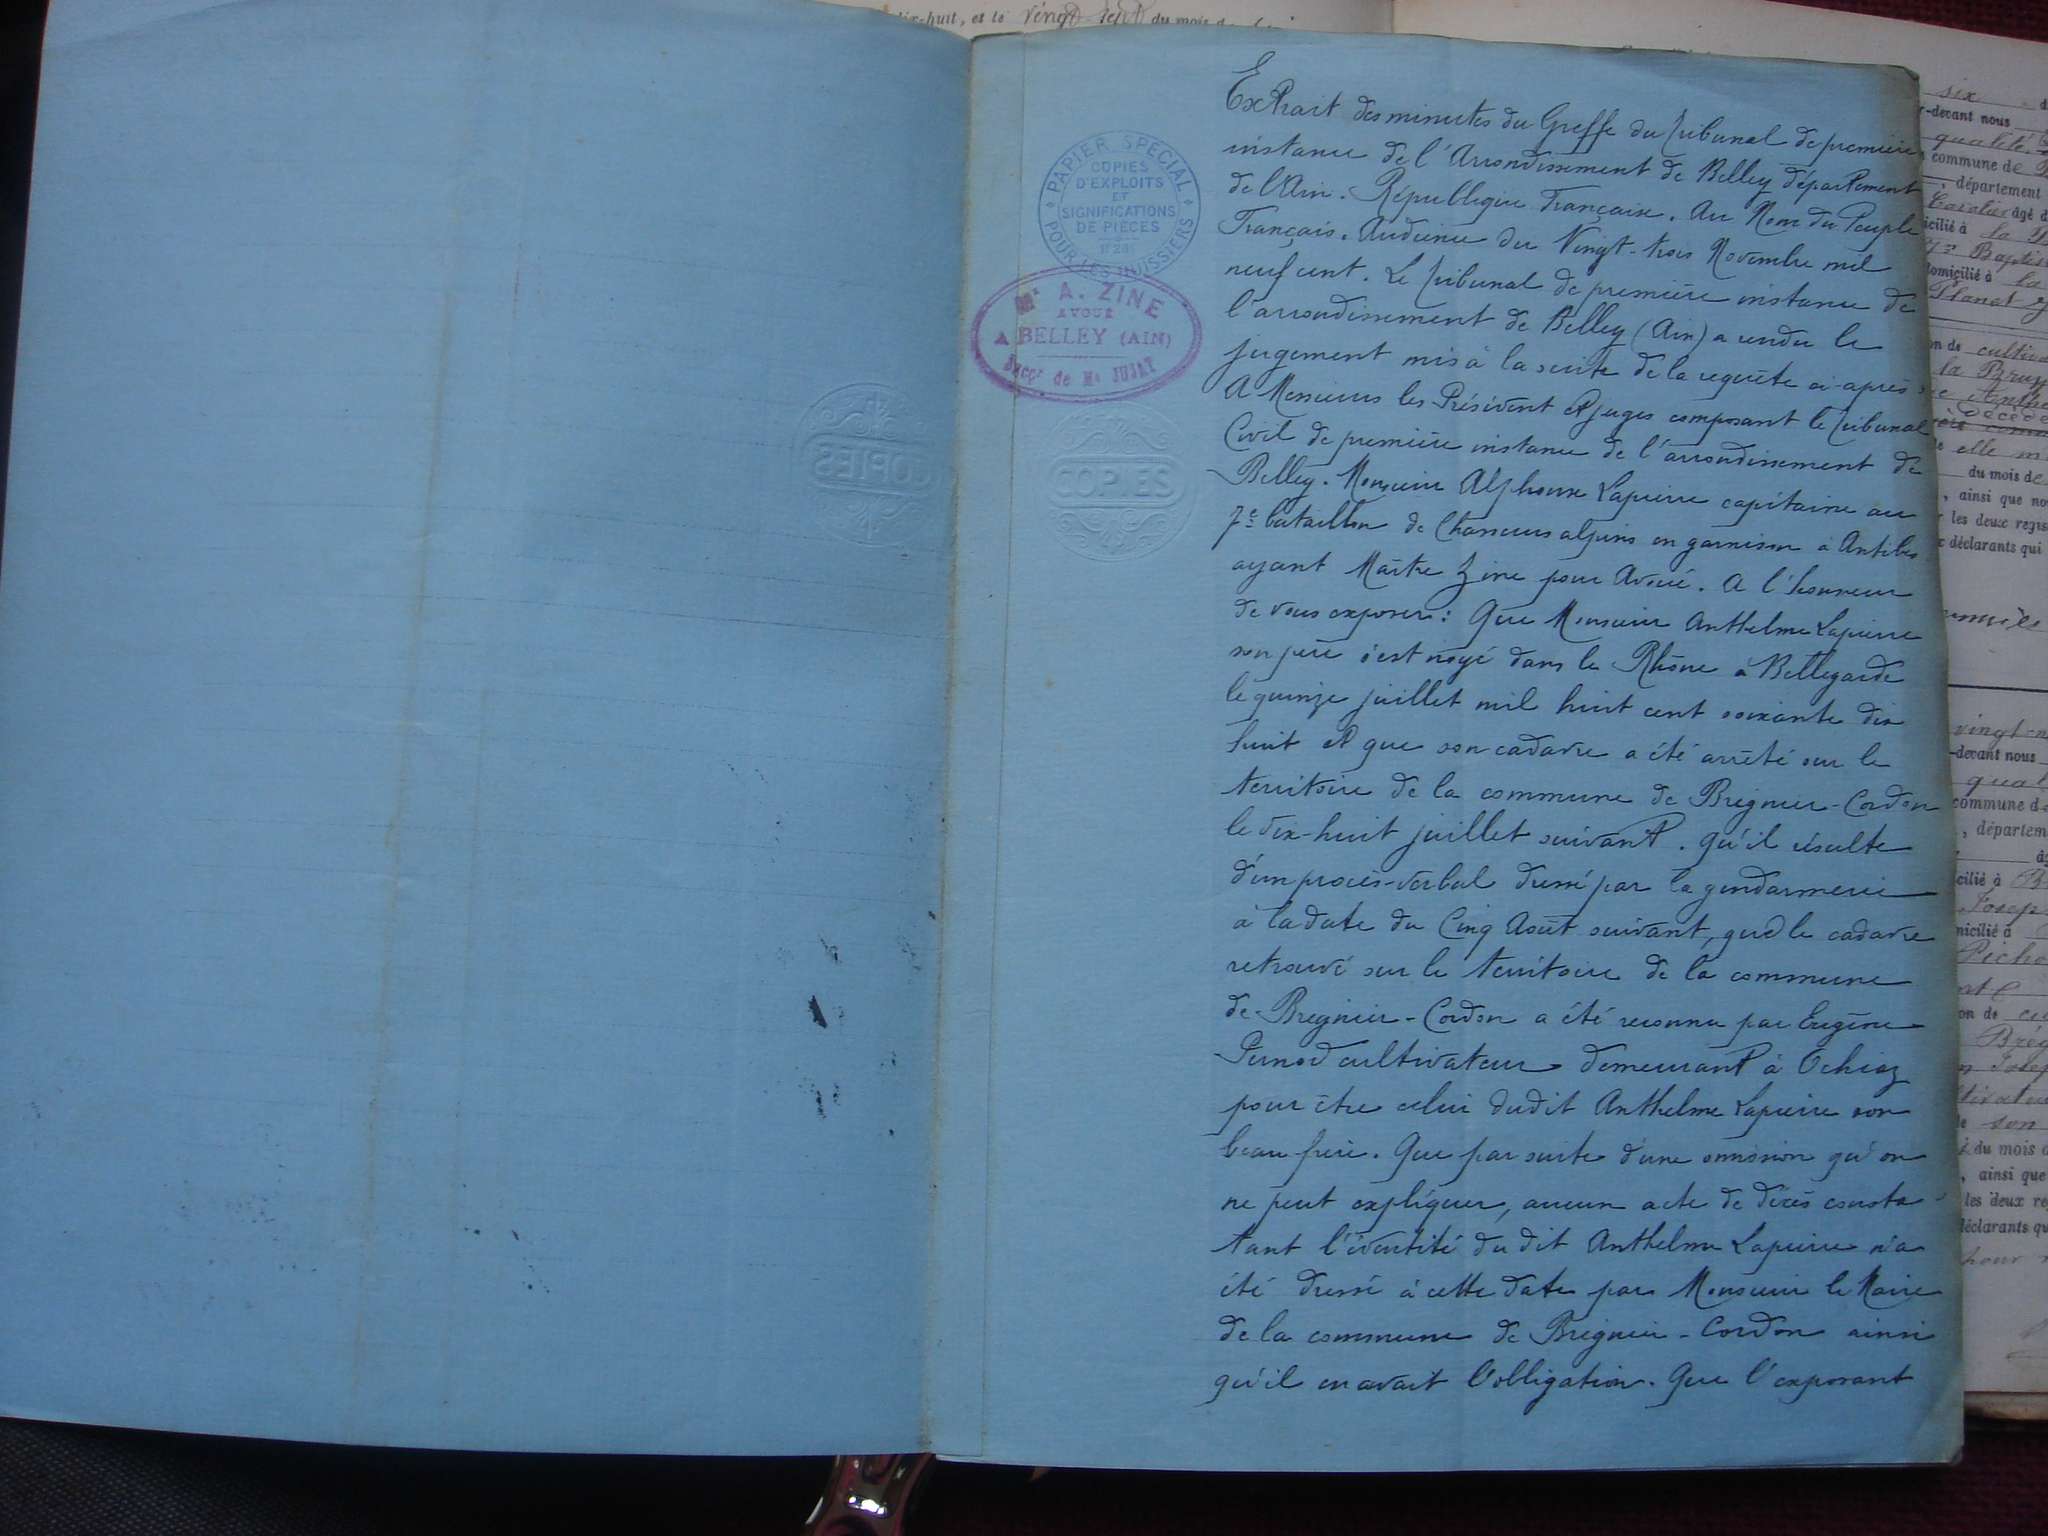 dix-huit, et le vingt sept du mois de
PAPIER SPECIAL
COPIES
D'EXPLOITS
ET
SIGNIFICATIONS
DE PIÈCES
POUR LES HUISSIERS
Me A. ZINE
AVOUÉ
A BELLEY (AIN)
Succr de Me JUJAT
COPIES
COPIES
Extrait des minutes du Greffe du Tribunal de première
instance de l'Arrondissement de Belley département
de l'Ain. République Française. Au Nom du Peuple
Français. Audience du Vingt-trois Novembre mil
neuf cent. Le Tribunal de première instance de
l'arrondissement de Belley (Ain) a rendu le
jugement mis à la suite de la requête ci-après :
A Messieurs les Président et juges composant le Tribunal
Civil de première instance de l'arrondissement de
Belley. Monsieur Alphonse Lapierre capitaine au
7e bataillon de Chasseurs alpins en garnison à Antibes
ayant Maître Zine pour Avoué. A l'honneur
de vous exposer : Que Monsieur Anthelme Lapierre
son père s'est noyé dans le Rhône à Bellegarde
le quinze juillet mil huit cent soixante dix
huit et que son cadavre a été arrêté sur le
territoire de la commune de Bregnier-Cordon
le dix-huit juillet suivant. Qu'il résulte
d'un procès-verbal dressé par la gendarmerie
à la date du Cinq Août suivant, que le cadavre
retrouvé sur le territoire de la commune
de Bregnier-Cordon a été reconnu par Eugène
Pernod cultivateur demeurant à Ochiaz
pour être celui dudit Anthelme Lapierre son
beau frère. Que par suite d'une omission qu'on
ne peut expliquer, aucun acte de décès consta
tant l'identité du dit Anthelme Lapierre n'a
été dressé à cette date par Monsieur le Maire
de la commune de Bregnier-Cordon ainsi
qu'il en avait l'obligation. Que l'exposant
six
-devant nous
qualité
commune de
, département
âgé d
icilié à la
Baptis
domicilié à la
on de cultiva
elle m
du mois de
, ainsi que no
les deux regis
déclarants qui
vingt-n
-devant nous
qual
commune d
, départem
cilié à
Josep
micilié à
Picho
on de
son
du mois
, ainsi que
les deux re
déclarants qu